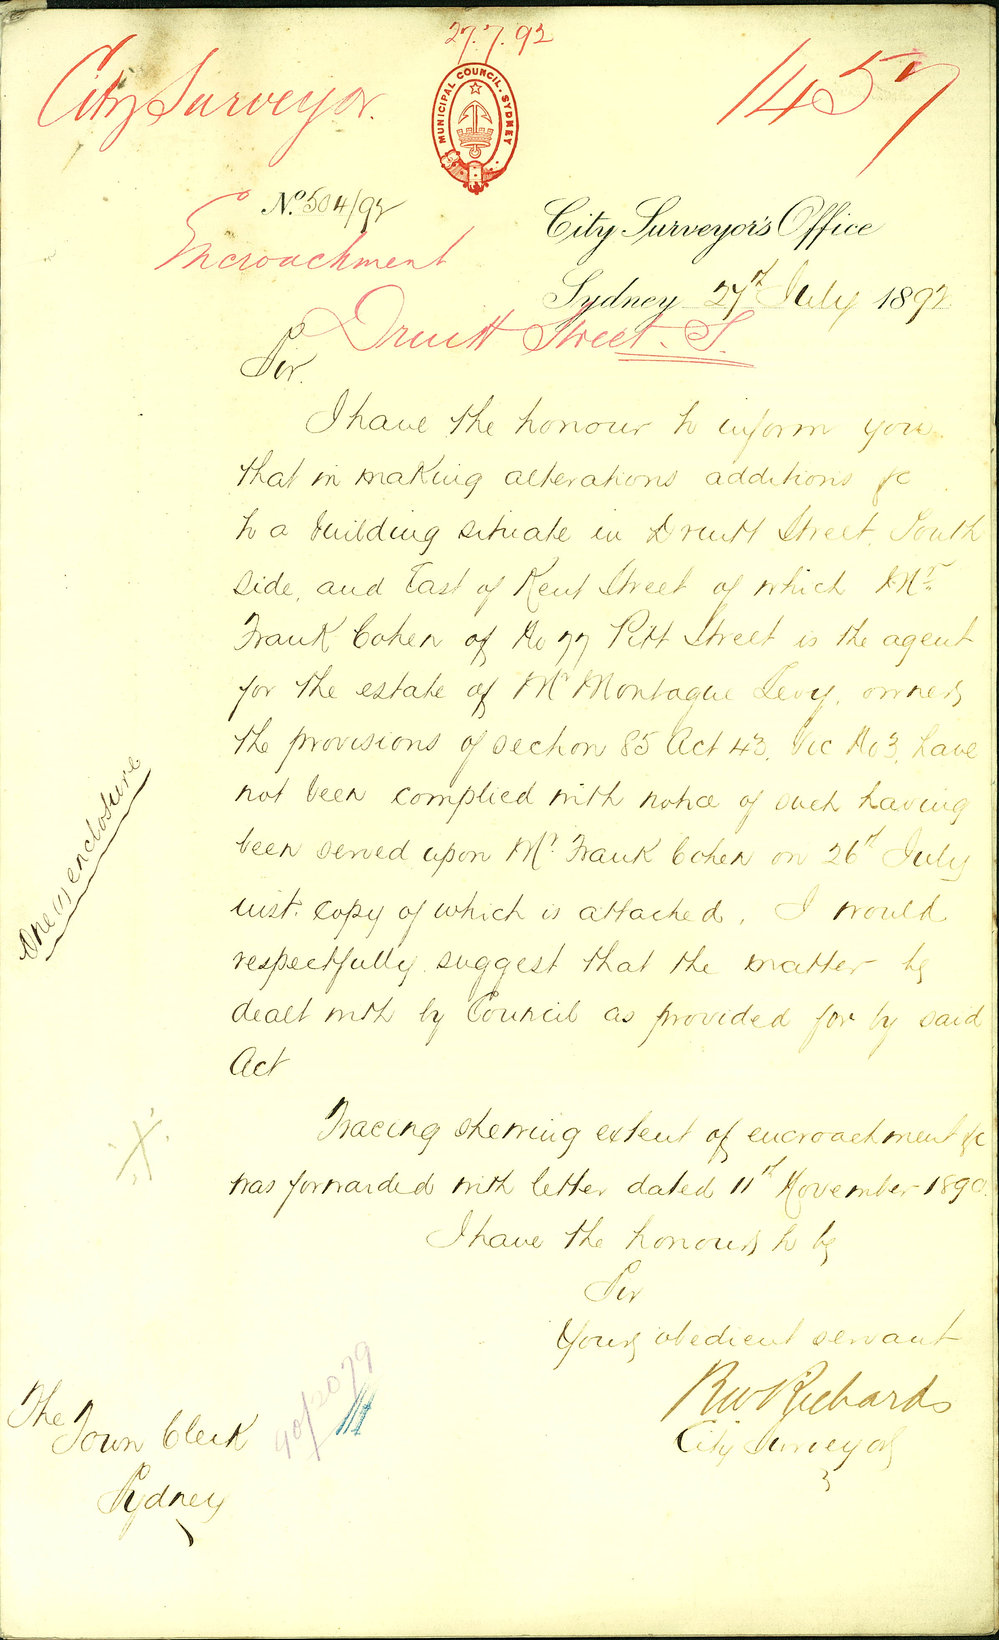 27.7.92
City Surveyor.
1457
MUNICIPAL COUNCIL. SYDNEY
No. 504/92
City Surveyor's Office
Encroachment
Sydney 27th July 1892
Druitt Street. S.
Sir.
I have the honour to inform you
that in making alterations additions &c
to a building situate in Druitt Street, South
side, and East of Kent Street of which Mr.
Frank Cohen of No 77 Pitt Street is the agent
for the estate of Mr Montague Levy, owners
the provisions of section 85 Act 43, Vic No 3, have
not been complied with notice of such having
been served upon Mr. Frank Cohen on 26th July
inst. copy of which is attached. I would
respectfully suggest that the matter be
dealt with by Council as provided for by said
Act
One (1) enclosure
Tracing shewing extent of encroachment &c
was forwarded with letter dated 11th November 1890.
I have the honour to be
Sir
Your obedient servant
RW Richards
City Surveyor
The
Town Clerk
Sydney
90/2079